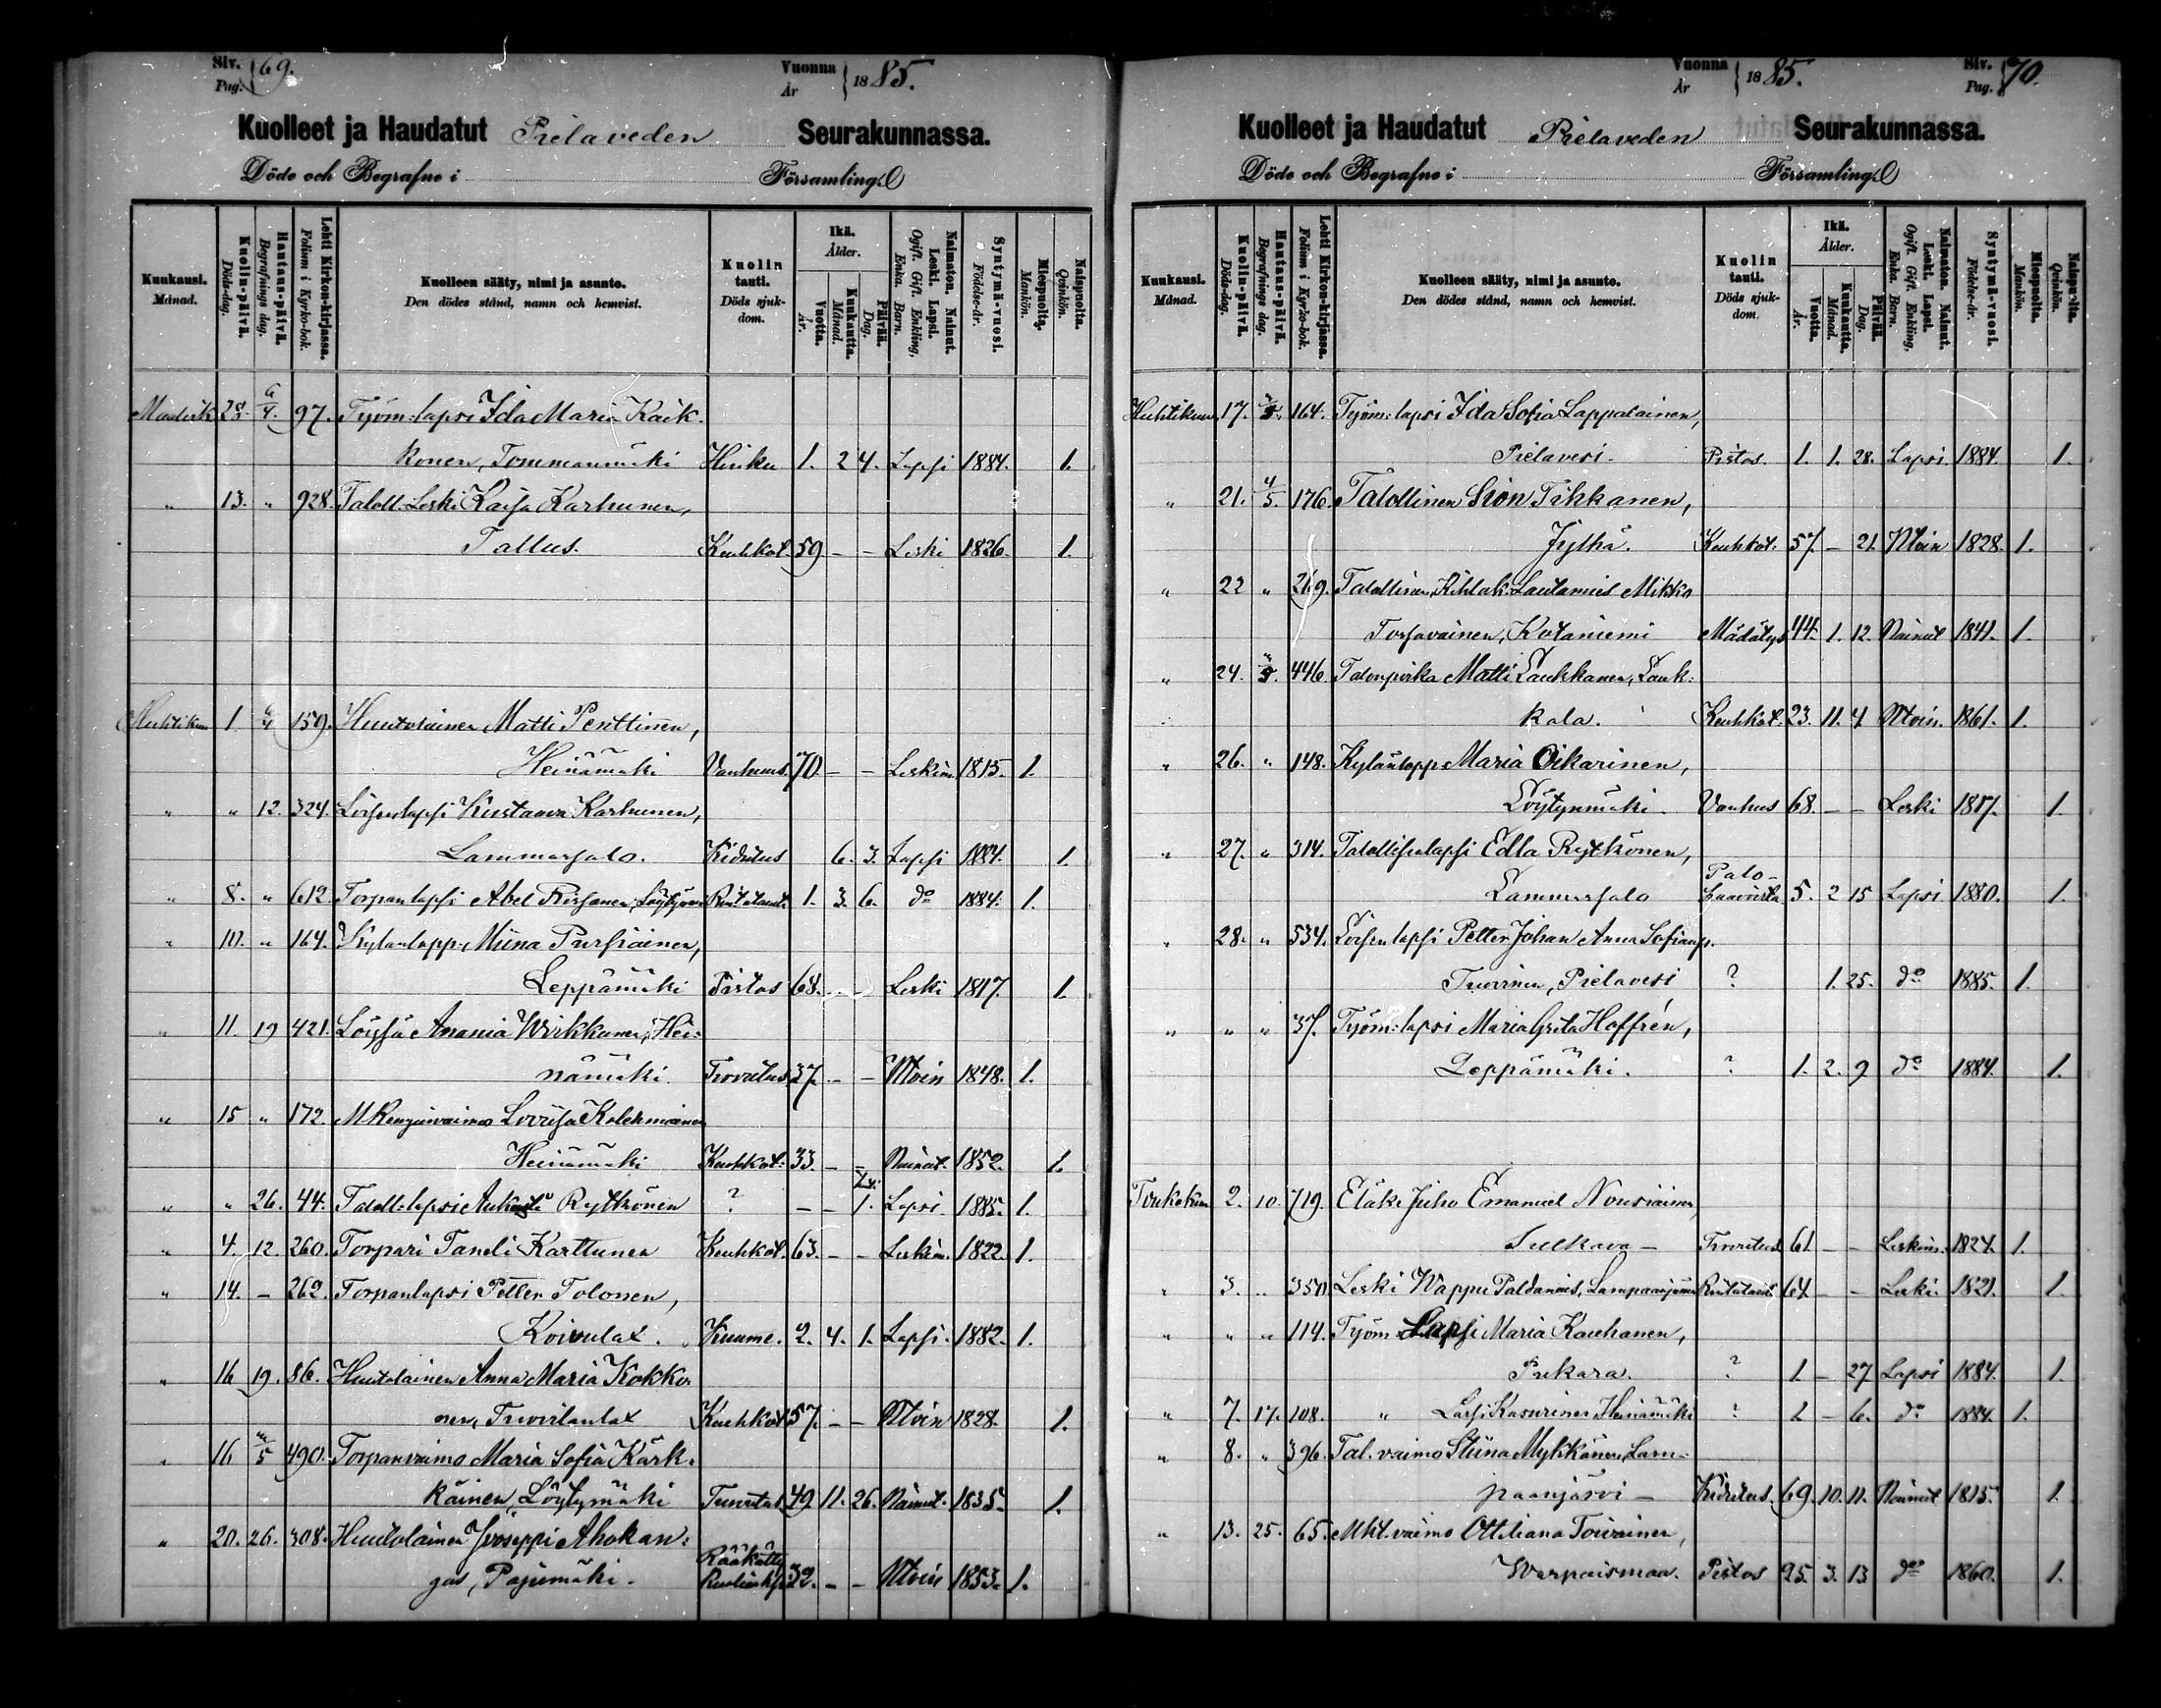 Siv. Pag. 69. Vuonna År 1885.
Kuolleet ja Haudatut Pielaveden Seurakunnassa.
Döde och Begrafne i Församling.
Kuukausi. Månad. Kuolin-päivä. Döds-dag. Hautaus-päivä. Begrafnings dag. Lehti Kirkon-kirjassa. Folium i Kyrko-bok. Kuolleen sääty, nimi ja asunto. Den dödes stånd, namn och hemvist. Kuolin tauti. Döds sjukdom. Ikä. Ålder. Vuotta. År. Kuukautta. Månad. Päivää. Dag. Naimaton. Nainut. Leski. Lapsi. Ogift. Gift. Enkling, Enka. Barn. Syntymä-vuosi. Födelse-år. Miespuolta. Mankön. Naispuolta. Qvinkön.
Maalisk. 28. 6/4. 97. Työm: lapsi Ida Maria Kaik-
konen, Tommonmäki Hinku 1. 2 4. Lapsi 1884. 1.
" 13. " 928. Taloll. Leski Kaisa Karhunen,
Tallus. Keuhkot. 59 – – Leski 1826. 1.
Huhtikuu 1 6/4 159. Huutolainen Matti Penttinen,
Heinämäki Vanhuus. 70. – – Leskim. 1815. 1.
" " 12. 324. Loisenlapsi Kustaava Karhunen,
Lammassalo. Kidutus 6. 3. Lapsi 1884. 1.
" 8. " 612. Torpanlapsi Abel Rissanen, 1. 3. 6. do 1884. 1.
" 10. " 164. Kylanlapp: Miina Pursiainen,
Leppämäki Pistos 68. – – Leski 1817. 1.
" 11. 19 421. Loisja Anania Wirkkunen, Hei-
nämäki. Turvotus 37. – – Ntoin 1848. 1.
" 15 " 172. M Rengin vaimo Lovisa Kolehmainen
Heinämäki Keuhkot: 33. – – Nainut. 1852. 1.
" " 26. 44. Taloll: lapsi Aukusti Rytkönen ? – – 1. Lapsi. 1885. 1.
" 4. 12. 260. Torpari Taneli Karttunen Keuhkot. 63. – – Leskim. 1822. 1.
" 14. – 262. Torpanlapsi Petter Tolonen,
Koivulax. Kuume. 2. 4. 1. Lapsi. 1882. 1.
" 16 19. 86. Huutolainen Anna Maria Kokko-
nen, Keuhkot 57. – – Ntoin 1828. 1.
" 16 4/5 490. Torpanvaimo Maria Sofia Kärk-
käinen, Löytymäki Turvotus 49 11. 26. Nainut. 1835. 1.
" 20. 26. 308. Huutolainen Jooseppi Ahokan-
gas, Pajumäki. Rääkätty 32. – – Ntoin 1853. 1.
Vuonna År 1885. Siv. Pag. 70.
Kuolleet ja Haudatut Pielaveden Seurakunnassa.
Döde och Begrafne i Församling.
Kuukausi. Månad. Kuolin-päivä. Döds-dag. Hautaus-päivä. Begrafnings dag. Lehti Kirkon-kirjassa. Folium i Kyrko-bok. Kuolleen sääty, nimi ja asunto. Den dödes stånd, namn och hemvist. Kuolin tauti. Döds sjukdom. Ikä. Ålder. Vuotta. År. Kuukautta. Månad. Päivää. Dag. Naimaton. Nainut. Leski. Lapsi. Ogift. Gift. Enkling, Enka. Barn. Syntymä-vuosi. Födelse-år. Miespuolta. Mankön. Naispuolta. Qvinkön.
Huhtikuu 17. 164. Työm: lapsi Ida Sofia Lappalainen,
Pielavesi. Pistos. 1. 1. 28. Lapsi. 1884. 1.
" 21. 4/5. 176. Talollinen Sion Tikkanen,
Jylhä. Keuhkot: 57. – 21. Ntoin 1828. 1.
" 22 " 269. Talollinen, Kihlak: Lautamies Mikko
Torfavainen, Kotaniemi Mädätys 44. 1. 12. Nainut 1841. 1.
" 24. 446. Talonpoika Matti Laukkanen, Lauk-
kala. Keuhkot. 23. 11. 4. Ntoin. 1861. 1.
" 26. " 148. Kylänlapp: Maria Oikarinen,
Löytynmäki. Vanhus 68. – – Leski 1817. 1.
" 27. " 314. Talollisenlapsi Edla Rytkönen,
Lammassalo Palo-haavista 5. 2 15 Lapsi 1880. 1.
" 28. " 534. Loisen lapsi Petter Johan Anna Sofianp.
Pielavesi ? 1. 25. do 1885. 1.
" " " 37. Työm: lapsi Maria Greta Hoffrén,
Leppämäki. ? 1. 2. 9 do 1884. 1.
Toukokuu 2. 10. 719. Eläkj Juho Emanuel Nousiainen,
Sulkava – Turvotus 61. – – Leskim. 1824. 1.
" 3. " 350 Leski Wappu Paldanius, Lampaanjärvi 64. – – Leski. 1821. 1.
" " " 114. Työm: Lapsi Maria Kauhanen,
Pukara. ? 1 – 27 Lapsi 1884. 1.
" 7. 17. 108. " Lassi Kasurinen, Heinämäki ? 1 – 6. do 1884. 1.
" 8. " 396. Tal. vaimo Stiina Mykkänen, Lam-
paanjärvi – Kidutus. 69. 10. 11. Nainut 1815. 1.
" 13. 25. 65. vaimo Ottiliana Toivainen,
Warpaismaa. Pistos 25. 3. 13 do 1860. 1.